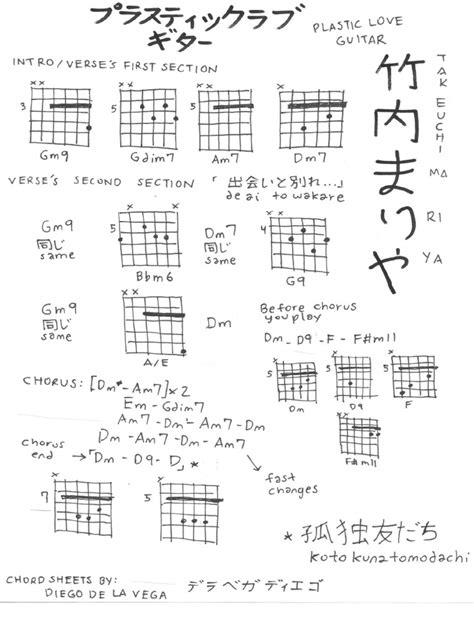 プラスティックラブ
ギター
PLASTIC LOVE
GUITAR
竹内まりや
TAKEUCHI MARIYA
INTRO/VERSE'S FIRST SECTION
xx
3
Gm9
5
Gdim7
xx
5
Am7
xx
5
Dm7
VERSE'S SECOND SECTION
「出会いと別れ...」
deai to wakare
Gm9
同じ
same
x x
5
Bbm6
Dm7
同じ
same
x x
4
G9
Gm9
同じ
same
xx
A/E
Dm
Before chorus
you play
Dm - D9 - F - F#m11
5
Dm
5
D9
5
F
F#m11
CHORUS: [Dm*-Am7]x2
Em - Gdim7
Am7 - Dm - Am7 - Dm
Dm - Am7 - Dm - Am7
chorus
end → 「Dm - D9 - D」*
fast
changes
xx
7
xx
5
* 孤独友だち
kotokunatomodachi
CHORD SHEETS BY:
DIEGO DE LA VEGA
デラベガディエゴ